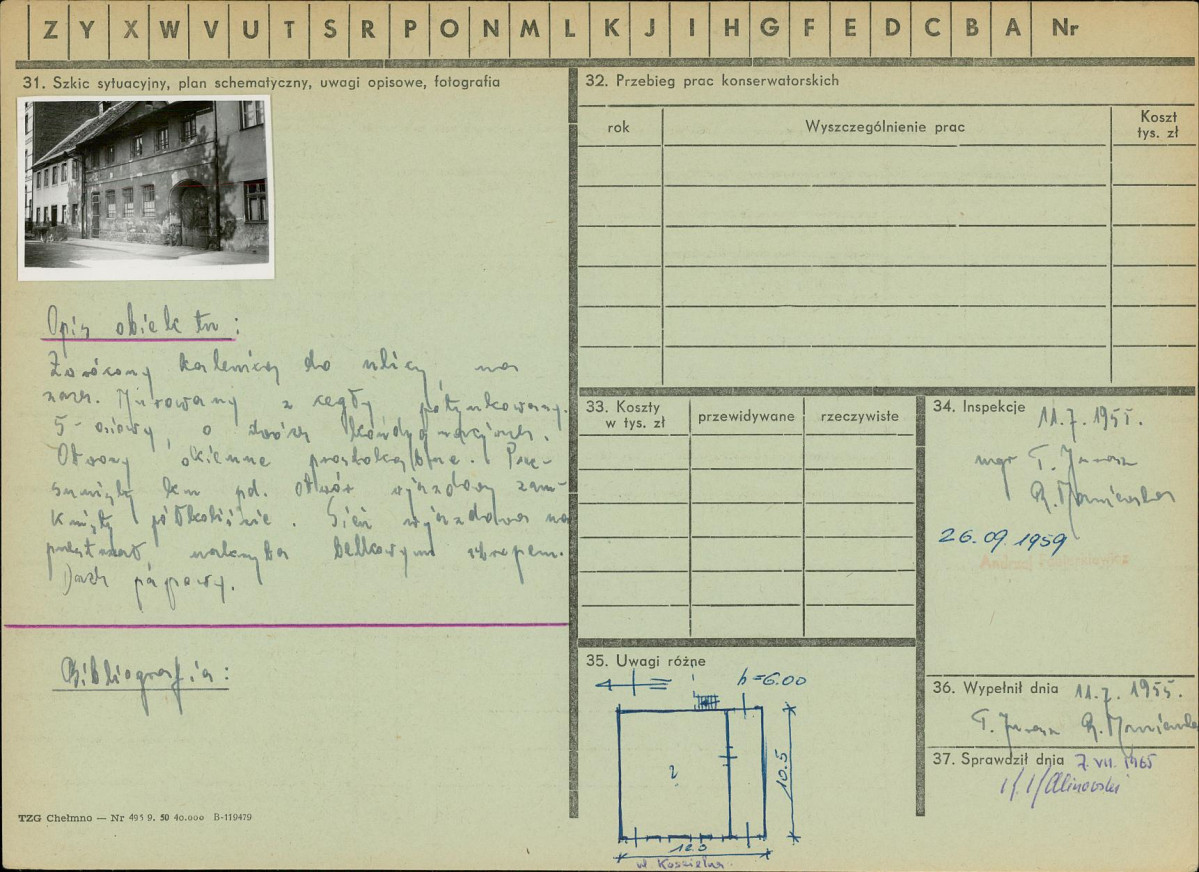 Z Y X W V U T S R P O N M L K J I H G F E D C B A Nr
31. Szkic sytuacyjny, plan schematyczny, uwagi opisowe, fotografia
Opis obiektu:
Zwrócony kalenicą do ulicy, na
zach. Murowany z cegły, potynkowany.
5-osiowy, o dwóch kondygnacjach.
Otwory okienne prostokątne. Prze-
sunięty ku pd. otwór wjazdowy zam-
knięty półkoliście. Sień wjazdowa na
przestrzał nakryta belkowym stropem.
Dach papowy.
Bibliografia:
TZG Chełmno — Nr 495 9. 50 40.000 B-119479
32. Przebieg prac konserwatorskich
rok
Wyszczególnienie prac
Koszt
tys. zł
33. Koszty
w tys. zł
przewidywane
rzeczywiste
34. Inspekcje
11.7.1955.
mgr T. Jurasz
R. Maniewska
26.09.1959
Andrzej
35. Uwagi różne
h=6.00
?
10.5
12.0
ul. Kościelna
36. Wypełnił dnia 11.7.1955.
T. Jurasz R. Maniewska
37. Sprawdził dnia 7.VII.1965